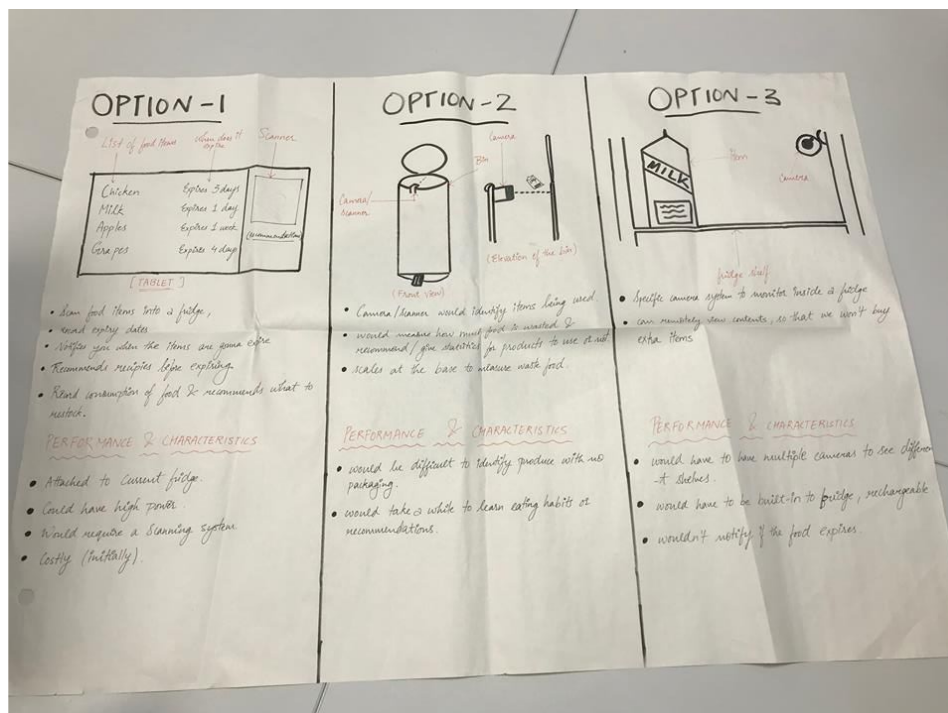 OPTION-1
List of food items
when does it expire
Scanner
Chicken Expires 3 days
Milk Expires 1 day
Apples Expires 1 week
Grapes Expires 4 days
(recommendation)
[TABLET]
• Scan food items into a fridge,
• read expiry dates
• Notifies you when the items are gonna expire
• Recommends recipies before expiring.
• Record consumption of food & recommends what to
restock.
PERFORMANCE & CHARACTERISTICS
• Attached to current fridge.
• Could have high power.
• Would require a scanning system
• Costly (initially).
OPTION-2
Camera
Bin
Camera/
Scanner
(Front view)
(Elevation of the bin)
• Camera/scanner would identify items being used
• would measure how much food is wasted &
recommend/give statistics for products to use or not.
• scales at the base to measure waste food.
PERFORMANCE & CHARACTERISTICS
• would be difficult to identify produce with no
packaging.
• would take a while to learn eating habits or
recommendations.
OPTION-3
MILK
Item
Camera
fridge shelf
• Specific camera system to monitor inside a fridge
• can remotely view contents, so that we won't buy
extra items
PERFORMANCE & CHARACTERISTICS
• would have to have multiple cameras to see differen
-t shelves.
• would have to be built-in to fridge, rechargeable
• wouldn't notify if the food expires.